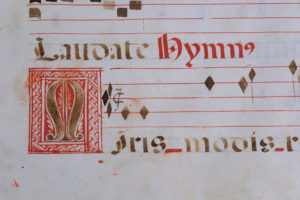 Laudate Hymnꝰ
Miris modis r